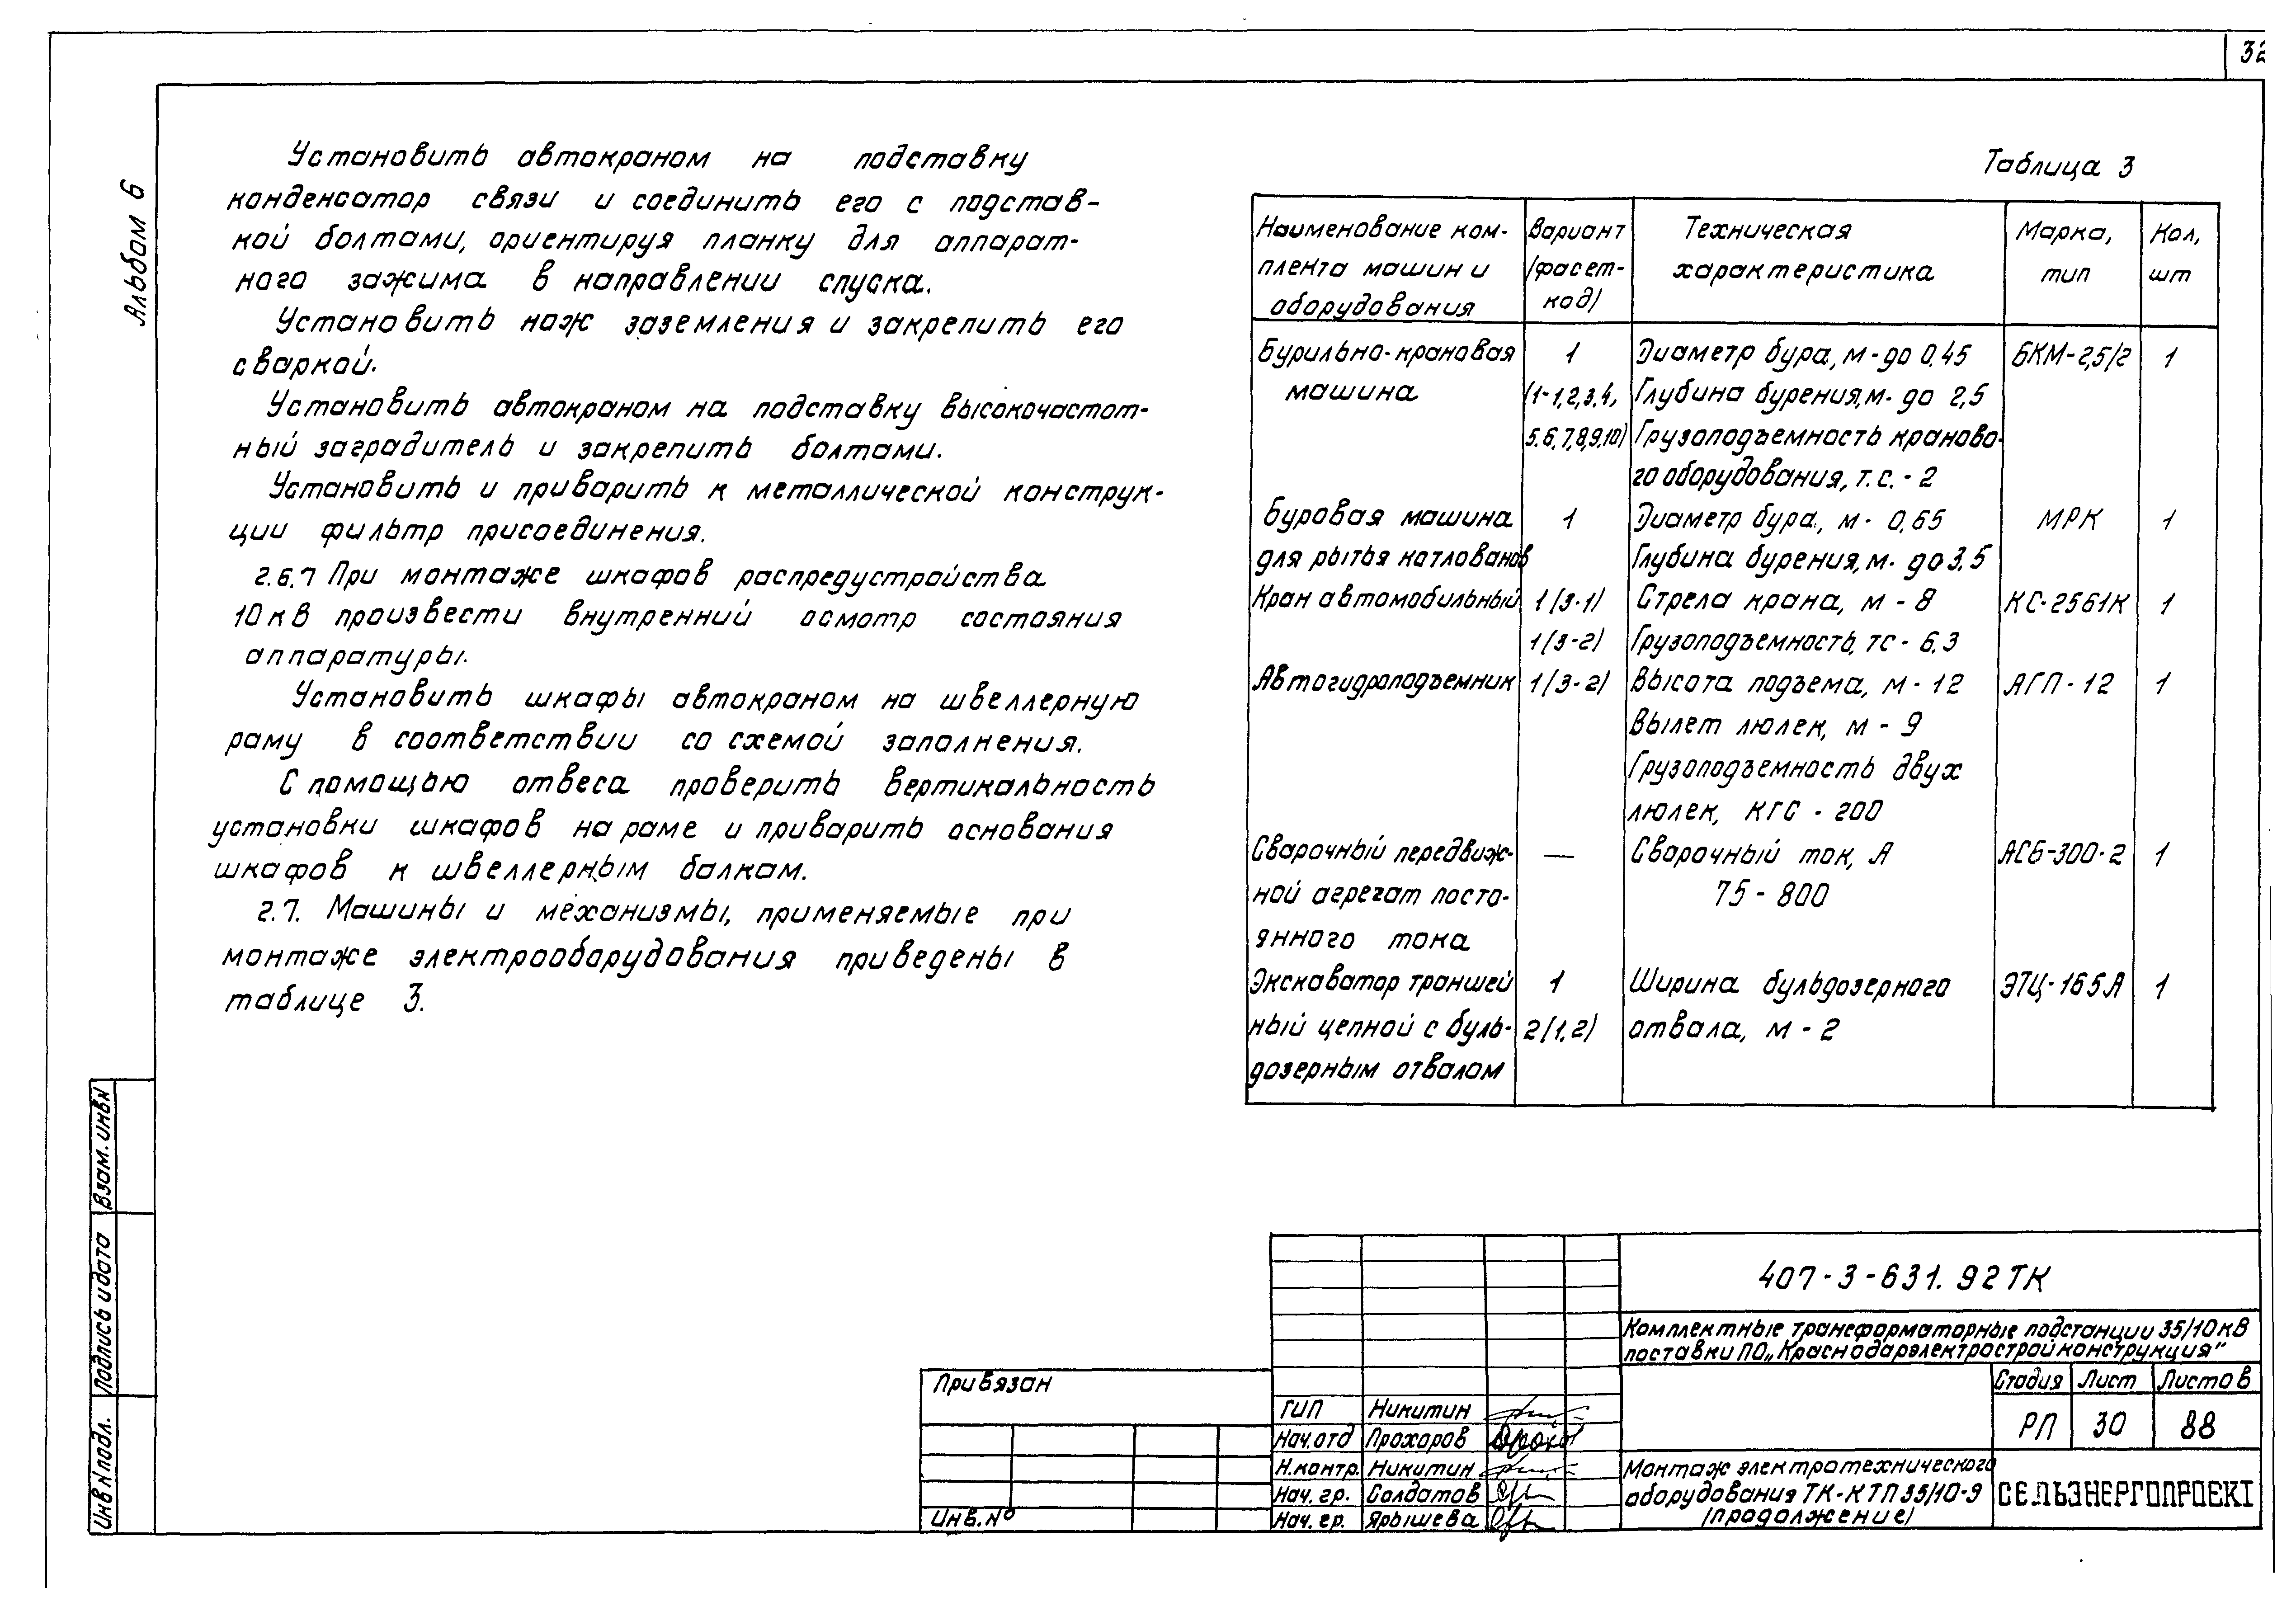 32
Альбом 6
Установить автокраном на подставку
конденсатор связи и соединить его с подстав-
кой болтами, ориентируя планку для аппарат-
ного зажима в направлении спуска.
Установить нож заземления и закрепить его
сваркой.
Установить автокраном на подставку высокочастот-
ный заградитель и закрепить болтами.
Установить и приварить к металлической конструк-
ции фильтр присоединения.
2.6.7 При монтаже шкафов распредустройства
10 кВ произвести внутренний осмотр состояния
аппаратуры.
Установить шкафы автокраном на швеллерную
раму в соответствии со схемой заполнения.
С помощью отвеса проверить вертикальность
установки шкафов на раме и приварить основания
шкафов к швеллерным балкам.
2.7. Машины и механизмы, применяемые при
монтаже электрооборудования приведены в
таблице 3.
Таблица 3
Наименование ком- Вариант Техническая Марка, Кол,
плекта машин и (фасет- характеристика тип шт
оборудования код)
Бурильно-крановая 1 Диаметр бура, м-до 0,45 БКМ-2,5/2 1
машина (1-1,2,3,4, Глубина бурения,м- до 2,5
5,6,7,8,9,10) Грузоподъемность краново-
го оборудования, т.с. - 2
Буровая машина 1 Диаметр бура, м- 0,65 МРК 1
для рытья котлованов Глубина бурения,м- до 3,5
Кран автомобильный 1(3-1) Стрела крана, м - 8 КС-2561К 1
1(3-2) Грузоподъемность, тс - 6,3
Автогидроподъемник 1(3-2) Высота подъема, м - 12 АГП-12 1
Вылет люлек, м - 9
Грузоподъемность двух
люлек, кгс - 200
Сварочный передвиж- — Сварочный ток, А АСБ-300-2 1
ной агрегат посто- 75 - 800
янного тока
Экскаватор траншей 1 Ширина бульдозерного ЭТЦ-165А 1
ный цепной с буль- 2(1,2) отвала, м - 2
дозерным отвалом
Взам. инв N
Подпись и дата
Инв N подл.
Привязан
Инв. №
ГИП Никитин
Нач.отд Прохоров
Н.контр. Никитин
Нач. гр. Солдатов
Нач. гр. Ярышева
407-3-631.92 ТК
Комплектные трансформаторные подстанции 35/10 кВ
поставки ПО „Краснодарэлектростройконструкция"
Стадия Лист Листов
РП 30 88
Монтаж электротехнического
оборудования ТК-КТП 35/10-Э
(продолжение)
СЕЛЬЭНЕРГОПРОЕКТ